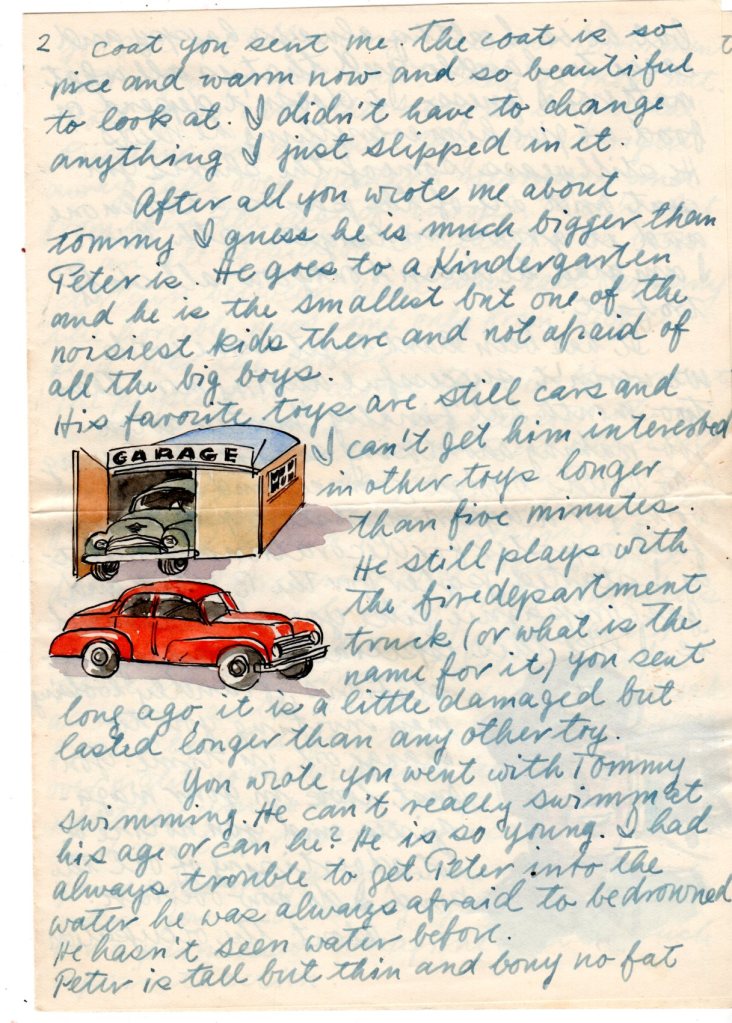 2 coat you sent me. The coat is so
nice and warm now and so beautiful
to look at. I didn't have to change
anything I just slipped in it.
After all you wrote me about
Tommy I guess he is much bigger than
Peter is. He goes to a Kindergarten
and he is the smallest but one of the
noisiest kids there and not afraid of
all the big boys.
His favorite toys are still cars and
GARAGE
I can't get him interested
in other toys longer
than five minutes.
He still plays with
the firedepartment
truck (or what is the
name for it) you sent
long ago, it is a little damaged but
lasted longer than any other toy.
You wrote you went with Tommy
swimming. He can't really swimm at
his age or can he? He is so young. I had
always trouble to get Peter into the
water he was always afraid to be drowned
He hasn't seen water before.
Peter is tall but thin and bony no fat